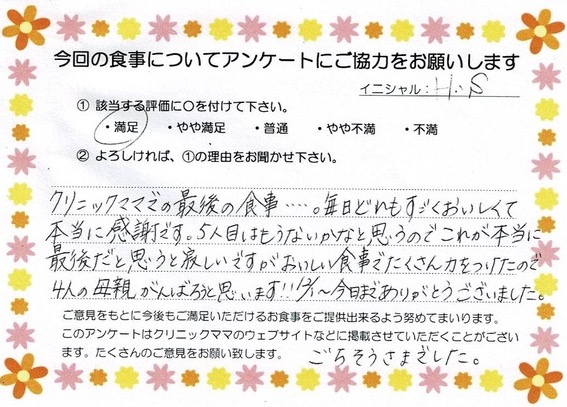 今回の食事についてアンケートにご協力をお願いします
イニシャル：H.S
① 該当する評価に〇を付けて下さい。
・満足 ・やや満足 ・普通 ・やや不満 ・不満
② よろしければ、①の理由をお聞かせ下さい。
クリニックママでの最後の食事‥‥。毎日どれもすごくおいしくて
本当に感謝です。5人目はもうないかなと思うのでこれが本当に
最後だと思うと寂しいですがおいしい食事でたくさん力をつけたので
4人の母親がんばろうと思います!! 〜今日までありがとうございました。
ご意見をもとに今後もご満足いただけるお食事をご提供出来るよう努めてまいります。
このアンケートはクリニックママのウェブサイトなどに掲載させていただくことがござい
ます。たくさんのご意見をお願い致します。
ごちそうさまでした。